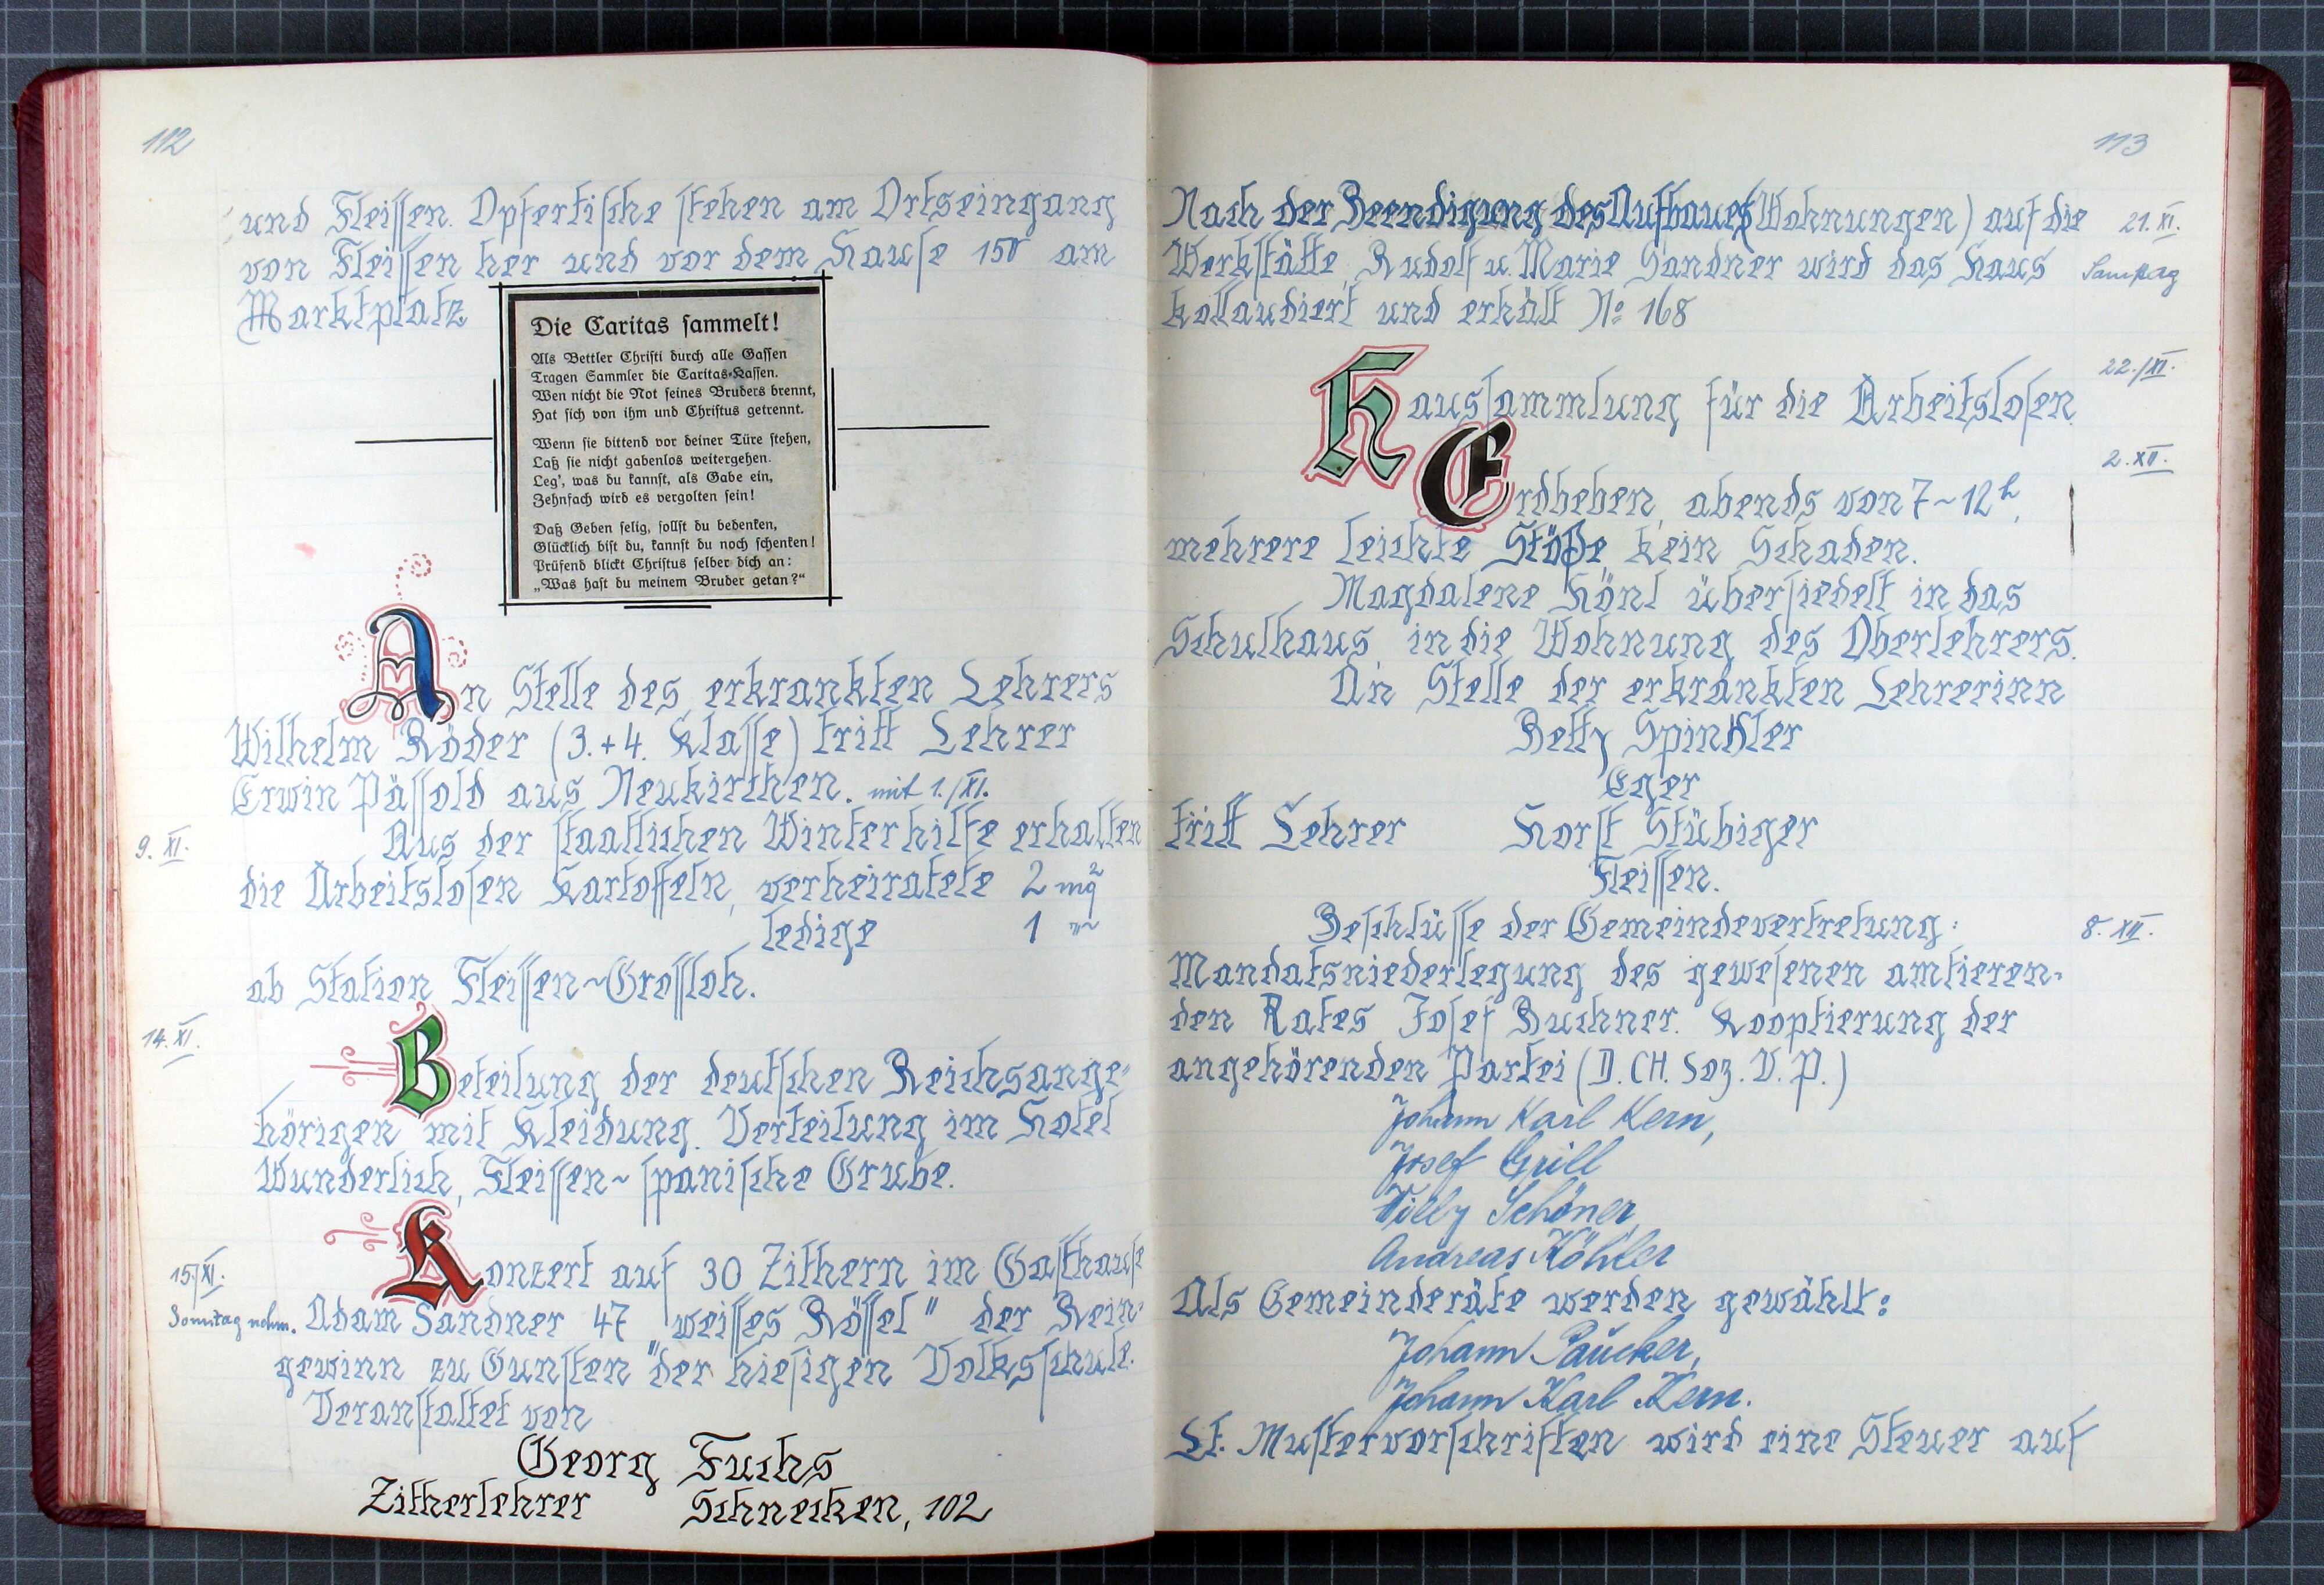 112
und Fleissen. Opfertische stehen am Ortseingang
von Fleissen her und vor dem Hause 150 am
Marktplatz
Die Caritas sammelt!
Als Bettler Christi durch alle Gassen
Tragen Sammler die Caritas-Kassen.
Wen nicht die Not seines Bruders brennt,
Hat sich von ihm und Christus getrennt.
Wenn sie bittend vor deiner Türe stehen,
Laß sie nicht gabenlos weitergehen.
Leg', was du kannst, als Gabe ein,
Zehnfach wird es vergolten sein!
Daß Geben selig, sollst du bedenken,
Glücklich bist du, kannst du noch schenken!
Prüfend blickt Christus selber dich an:
„Was hast du meinem Bruder getan?“
An Stelle des erkrankten Lehrers
Wilhelm Röder (3.+4. Klasse) tritt Lehrer
Erwin Pässold aus Neukirchen. mit 1./XI.
9. XI.
Aus der staatlichen Winterhilfe erhalten
die Arbeitslosen Kartoffeln, verheiratete 2 mq
ledige 1 "
ab Station Fleissen~Grossloh.
14. XI.
Beteilung der deutschen Reichsange-
hörigen mit Kleidung. Verteilung im Hotel
Wunderlich, Fleissen~spanische Grube.
15./XI.
Konzert auf 30 Zithern im Gasthause
Sonntag nchm. Adam Sandner 47 "weisses Rössel" der Rein-
gewinn zu Gunsten der hiesigen Volksschule.
Veranstaltet von
Georg Fuchs
Zitherlehrer Schnecken, 102
113
Nach der Beendigung des Aufbaues (Wohnungen) auf die
21. XI.
Werkstätte, Rudolf u. Marie Sandner wird das Haus
Samstag
kollaudiert und erhält No 168
22./XI.
Haussammlung für die Arbeitslosen.
2. XII.
Erdbeben, abends von 7~12 h,
mehrere leichte Stöße, kein Schaden.
Magdalene Hönl übersiedelt in das
Schulhaus, in die Wohnung des Oberlehrers.
An Stelle der erkrankten Lehrerinn
Betty Spinkler
Eger
tritt Lehrer Horst Stübiger
Fleissen.
Beschlüsse der Gemeindevertretung:
8. XII.
Mandatsniederlegung des gewesenen amtieren-
den Rates Josef Buchner. Kooptierung der
angehörenden Partei (D. CH. Soz. V. P.)
Johann Karl Kern,
Josef Grill
Willy Schöner,
Andreas Köhler
Als Gemeinderäte werden gewählt:
Johann Paucker,
Johann Karl Kern.
Lt. Mustervorschriften wird eine Steuer auf